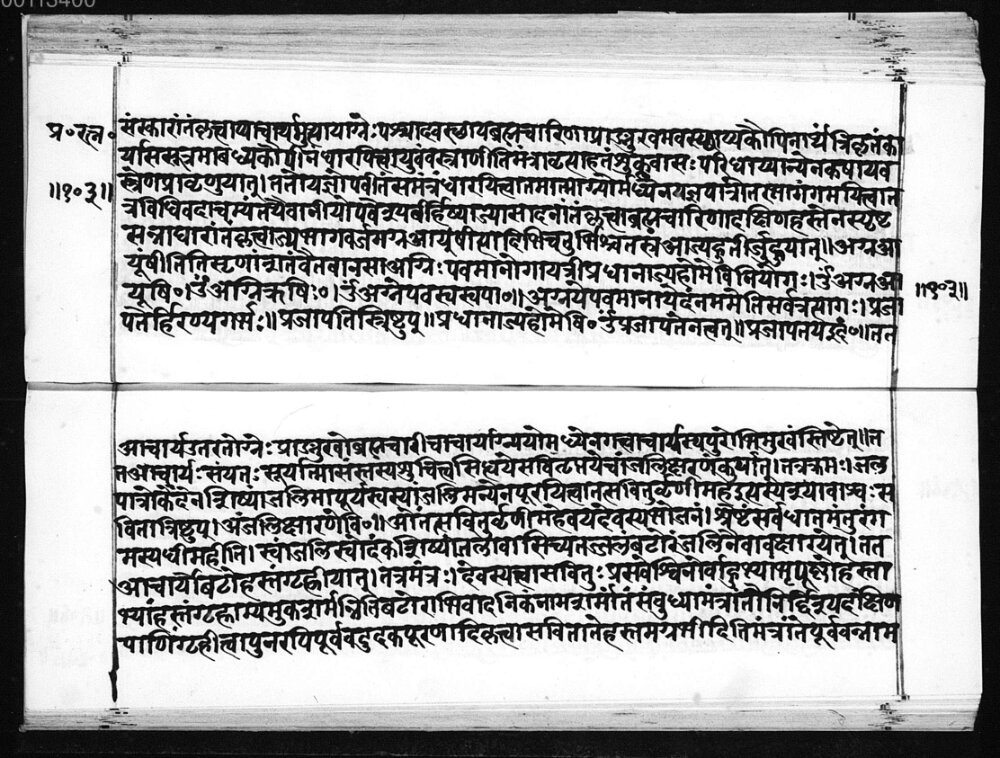 00113400
प्र॰रत्न॰
॥१०३॥
संस्कारांतंकृत्वाथाचार्य
पश्चादवस्थायब्रह्मचारिणंप्राङ्मुखमवस्थाप्यकौपिनार्थंत्रिवृतंका
र्याससूत्रमाबध्यकौपीनंधारयित्वायुवंवस्त्राणीतिमंत्रावृत्याहतंशुक्लंवासःपरिधाय्यान्येनकषायव
स्त्रेणप्रावृणुयात्।ततोयज्ञोपवीतंसमंत्रंधारयित्वातमात्माग्न्योर्मध्येनयज्ञपात्रोत्तरभागंगमयित्वात
त्रविधिवदाचम्यतथैवानीयोपवेश्यबर्हिष्याज्यासादनांतंकृत्वाब्रह्मचारिणादक्षिणहस्तेनस्पृष्ट
सन्नाघारांतंकृत्वाज्यभागवर्जमग्नआयूंषीत्यादिभिश्चतुर्भिश्चतस्रआज्याहुतीर्जुहुयात्॥अग्नआ
यूंषीतितिसृणांशतंवैखानसाअग्निःपवमानोगायत्रीप्रधानाज्यहोमेविनियोगः।ॐअग्नआ
॥१०३॥
यूंषि॰।ॐअग्निर्ऋषिः॰।ॐअग्नेपवस्वस्वपा॰॥अग्नयेपवमानायेदंनममेतिसर्वत्रत्यागः।प्रजा
पतेर्हिरण्यगर्भः॥प्रजापतिस्त्रिष्टुप्॥प्रधानाज्यहोमेवि॰ॐप्रजापतेनत्वत्॥प्रजापतयेइदं॰॥तत
आचार्यउत्तरतोग्नेःप्राङ्मुखोब्रह्मचारीचाचार्याग्न्ययोमध्येनगत्वाचार्यस्यपुरोभिमुखंस्तिष्टेत्॥त
तआचार्यःसंयतःसूर्यात्मासंस्तस्यशुचित्वसिध्धयेसवितृप्तयेचांजलिक्षरणंकुर्यात्।तत्रक्रमः।जल
पात्रोकेनैनंशिष्यांजलिमापूर्यस्वस्यांजलिमन्येनपूरयित्वातत्सवितुर्वृणीमहेइत्यस्यश्यावाश्वःस
वितात्रिष्टुप्।अंजलिक्षारणेवि॰॥ओंतत्सवितुर्वृणीमहेवयंदेवस्यभोजनं।श्रेष्ठंसर्वधातमंतुरंभ
गस्यधीमहीति।स्वांजलिस्थोदकंशिष्यांजलावासिच्यतज्जलंबटोरंजलिनैवावक्षारयेत्।तत
आचार्योबटोहस्तंगृह्णीयात्।तत्रमंत्रः।देवस्यत्वासवितुःप्रसवेश्विनोर्बाहुभ्यांपूष्णोहस्ता
भ्यांहस्तंगृह्णाम्यमुकशर्मन्नितिबटोराभिवादनिकंनामशर्मांतंसंबुध्यामंत्रांतेनिर्दिश्यदक्षिण
पाणिंगृहीत्वापुनरपिपूर्ववदुदकपूरणादिकृत्वासवितातेहस्तमग्रभीदितिमंत्रांतेपूर्ववन्नाम